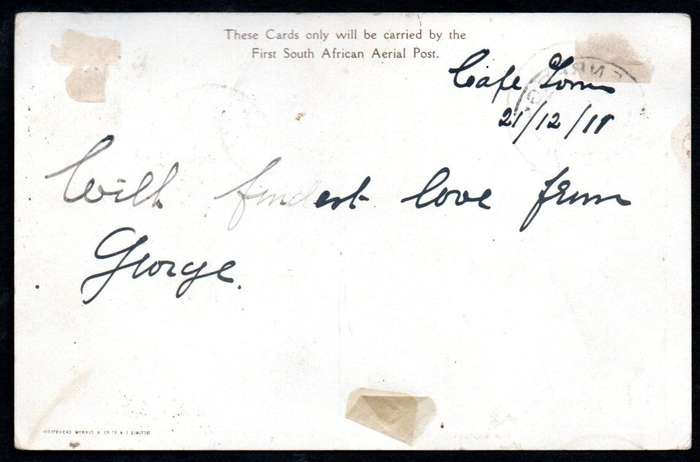 These Cards only will be carried by the
First South African Aerial Post.
Cape Town
21/12/11
With fondest love from
George.